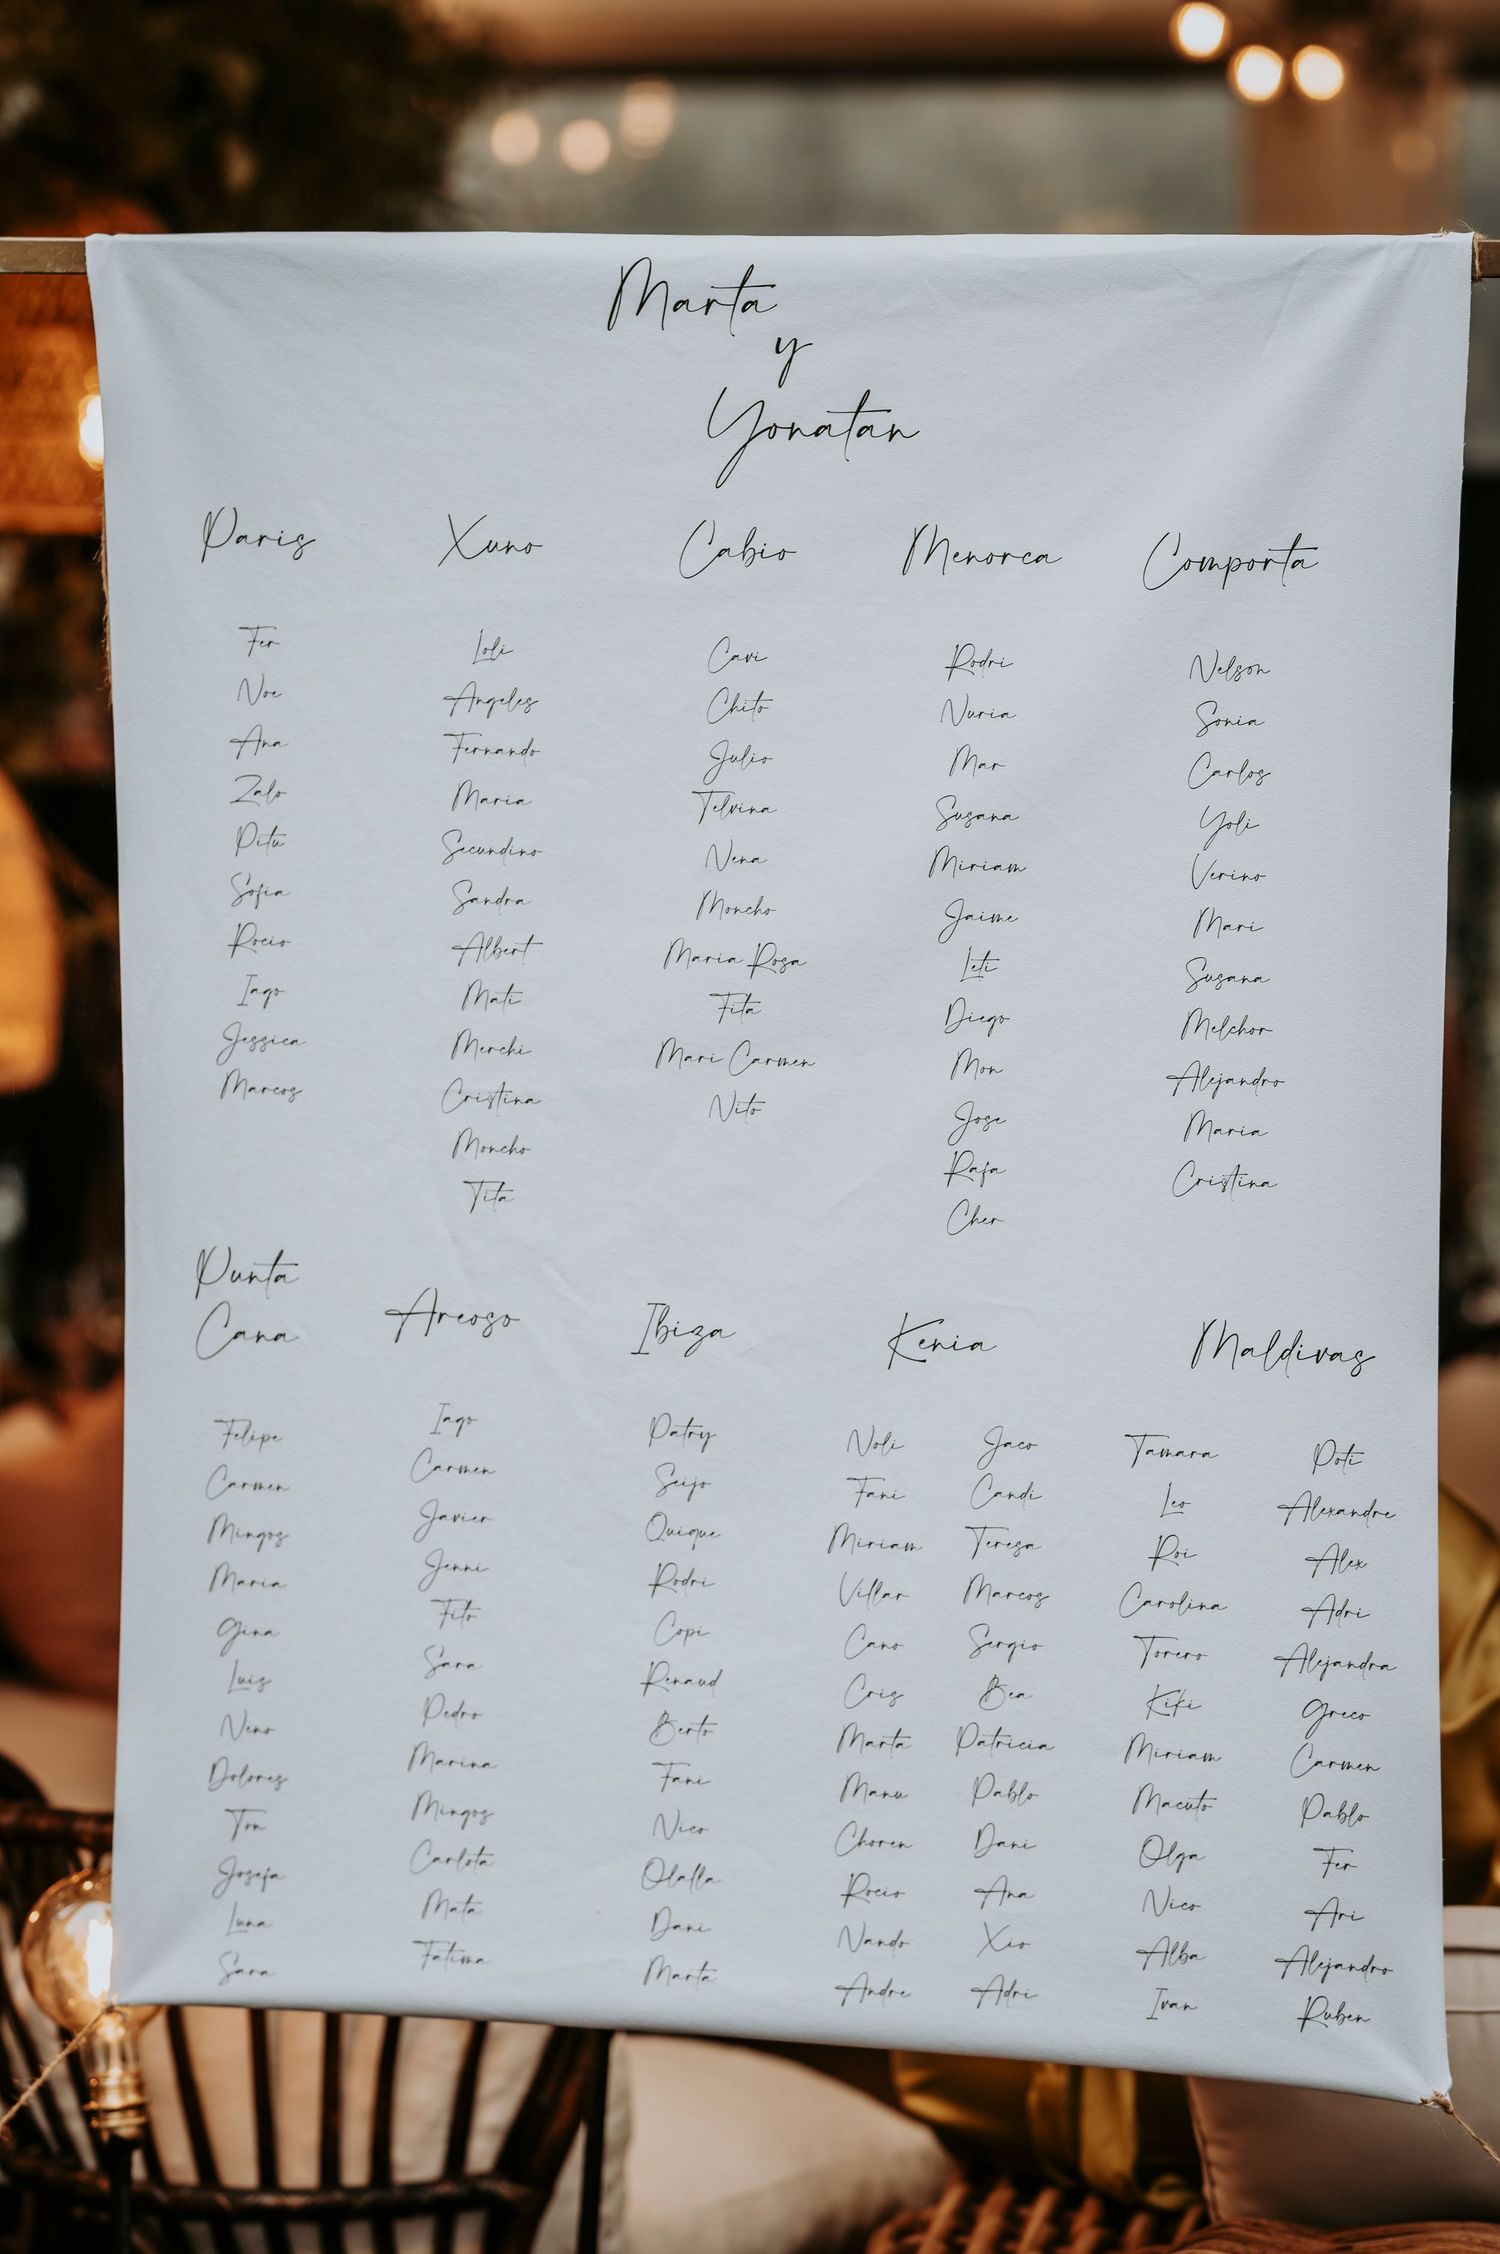 Marta
y
Yonatan
Paris
Fer
Noe
Ana
Zalo
Pitu
Sofia
Rocio
Iago
Jessica
Marcos
Xuno
Loli
Angeles
Fernando
Maria
Secundino
Sandra
Albert
Mati
Merchi
Cristina
Moncho
Tita
Cabio
Cavi
Chito
Julio
Telvina
Nena
Moncho
Maria Rosa
Fita
Mari Carmen
Nito
Menorca
Rodri
Nuria
Mar
Susana
Miriam
Jaime
Leti
Diego
Mon
Jose
Rafa
Cher
Comporta
Nelson
Sonia
Carlos
Yoli
Verino
Mari
Susana
Melchor
Alejandro
Maria
Cristina
Punta
Cana
Felipe
Carmen
Mingos
Maria
Gina
Luis
Neno
Dolores
Ton
Josefa
Luna
Sara
Areoso
Iago
Carmen
Javier
Jenni
Fito
Sara
Pedro
Marina
Mingos
Carlota
Mata
Fatima
Ibiza
Patry
Seijo
Quique
Rodri
Copi
Renaud
Berto
Fani
Nico
Olalla
Dani
Marta
Kenia
Noli
Fani
Miriam
Villar
Cano
Cris
Marta
Manu
Choren
Rocio
Nando
Andre
Jaco
Candi
Teresa
Marcos
Sergio
Bea
Patricia
Pablo
Dani
Ana
Xio
Adri
Maldivas
Tamara
Leo
Roi
Carolina
Torero
Kiki
Miriam
Macuto
Olga
Nico
Alba
Ivan
Poti
Alexandre
Alex
Adri
Alejandra
Greco
Carmen
Pablo
Fer
Ari
Alejandro
Ruben